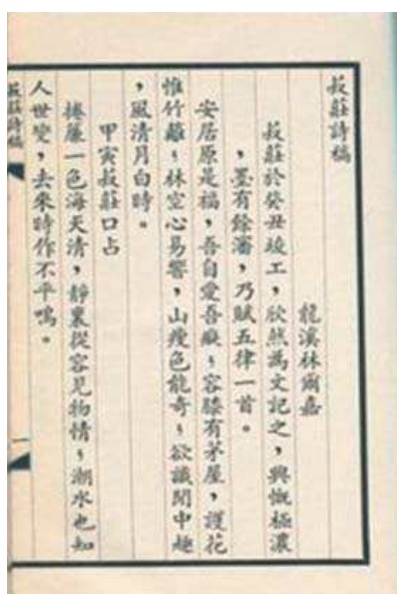 菽莊詩稿
龍溪林爾嘉
菽莊於癸丑竣工,欣然為文記之,興慨極濃
,墨有餘瀋,乃賦五律一首。
安居原是福,吾自愛吾廬,容膝有茅屋,護花
惟竹籬,林空心易響,山瘦色能奇,欲識閒中趣
,風清月白時。
甲寅菽莊口占
捲簾一色海天清,靜裏從容見物情,潮水也知
人世變,去來時作不平鳴。
菽莊詩稿
一